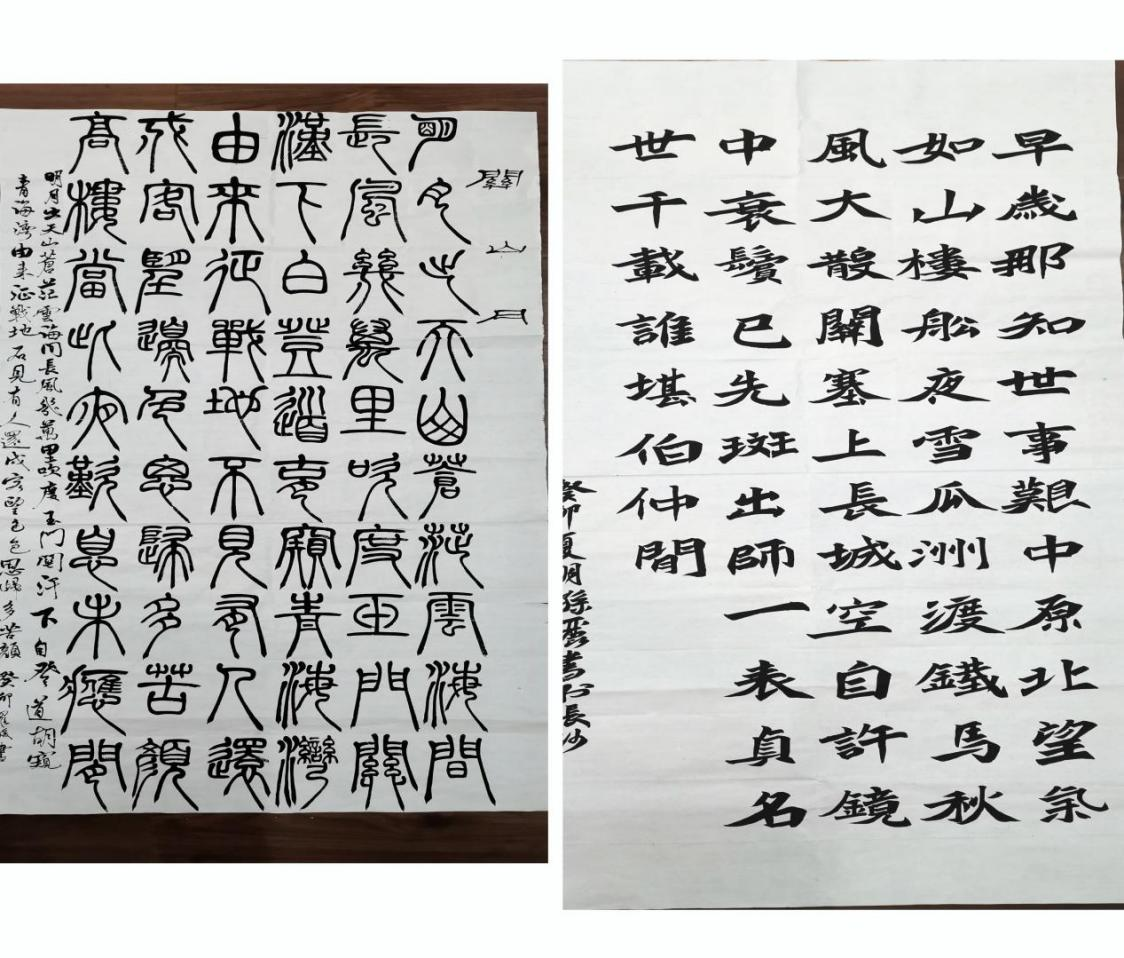 關山月
明月出天山蒼茫雲海間
長風幾萬里吹度玉門關
漢下白登道胡窺青海灣
由來征戰地不見有人還
戍客望邊色思歸多苦顏
高樓當此夜歎息未應閑
明月出天山蒼茫雲海間長風幾萬里吹度玉門關漢下自登道胡窺
青海灣由来征戰地不見有人還戍客望色思歸多苦顏癸卯書
早歲那知世事艱中原北望氣
如山樓船夜雪瓜洲渡鐵馬秋
風大散關塞上長城空自許鏡
中衰鬢已先斑出師一表真名
世千載誰堪伯仲間
癸卯夏月孫書於長沙